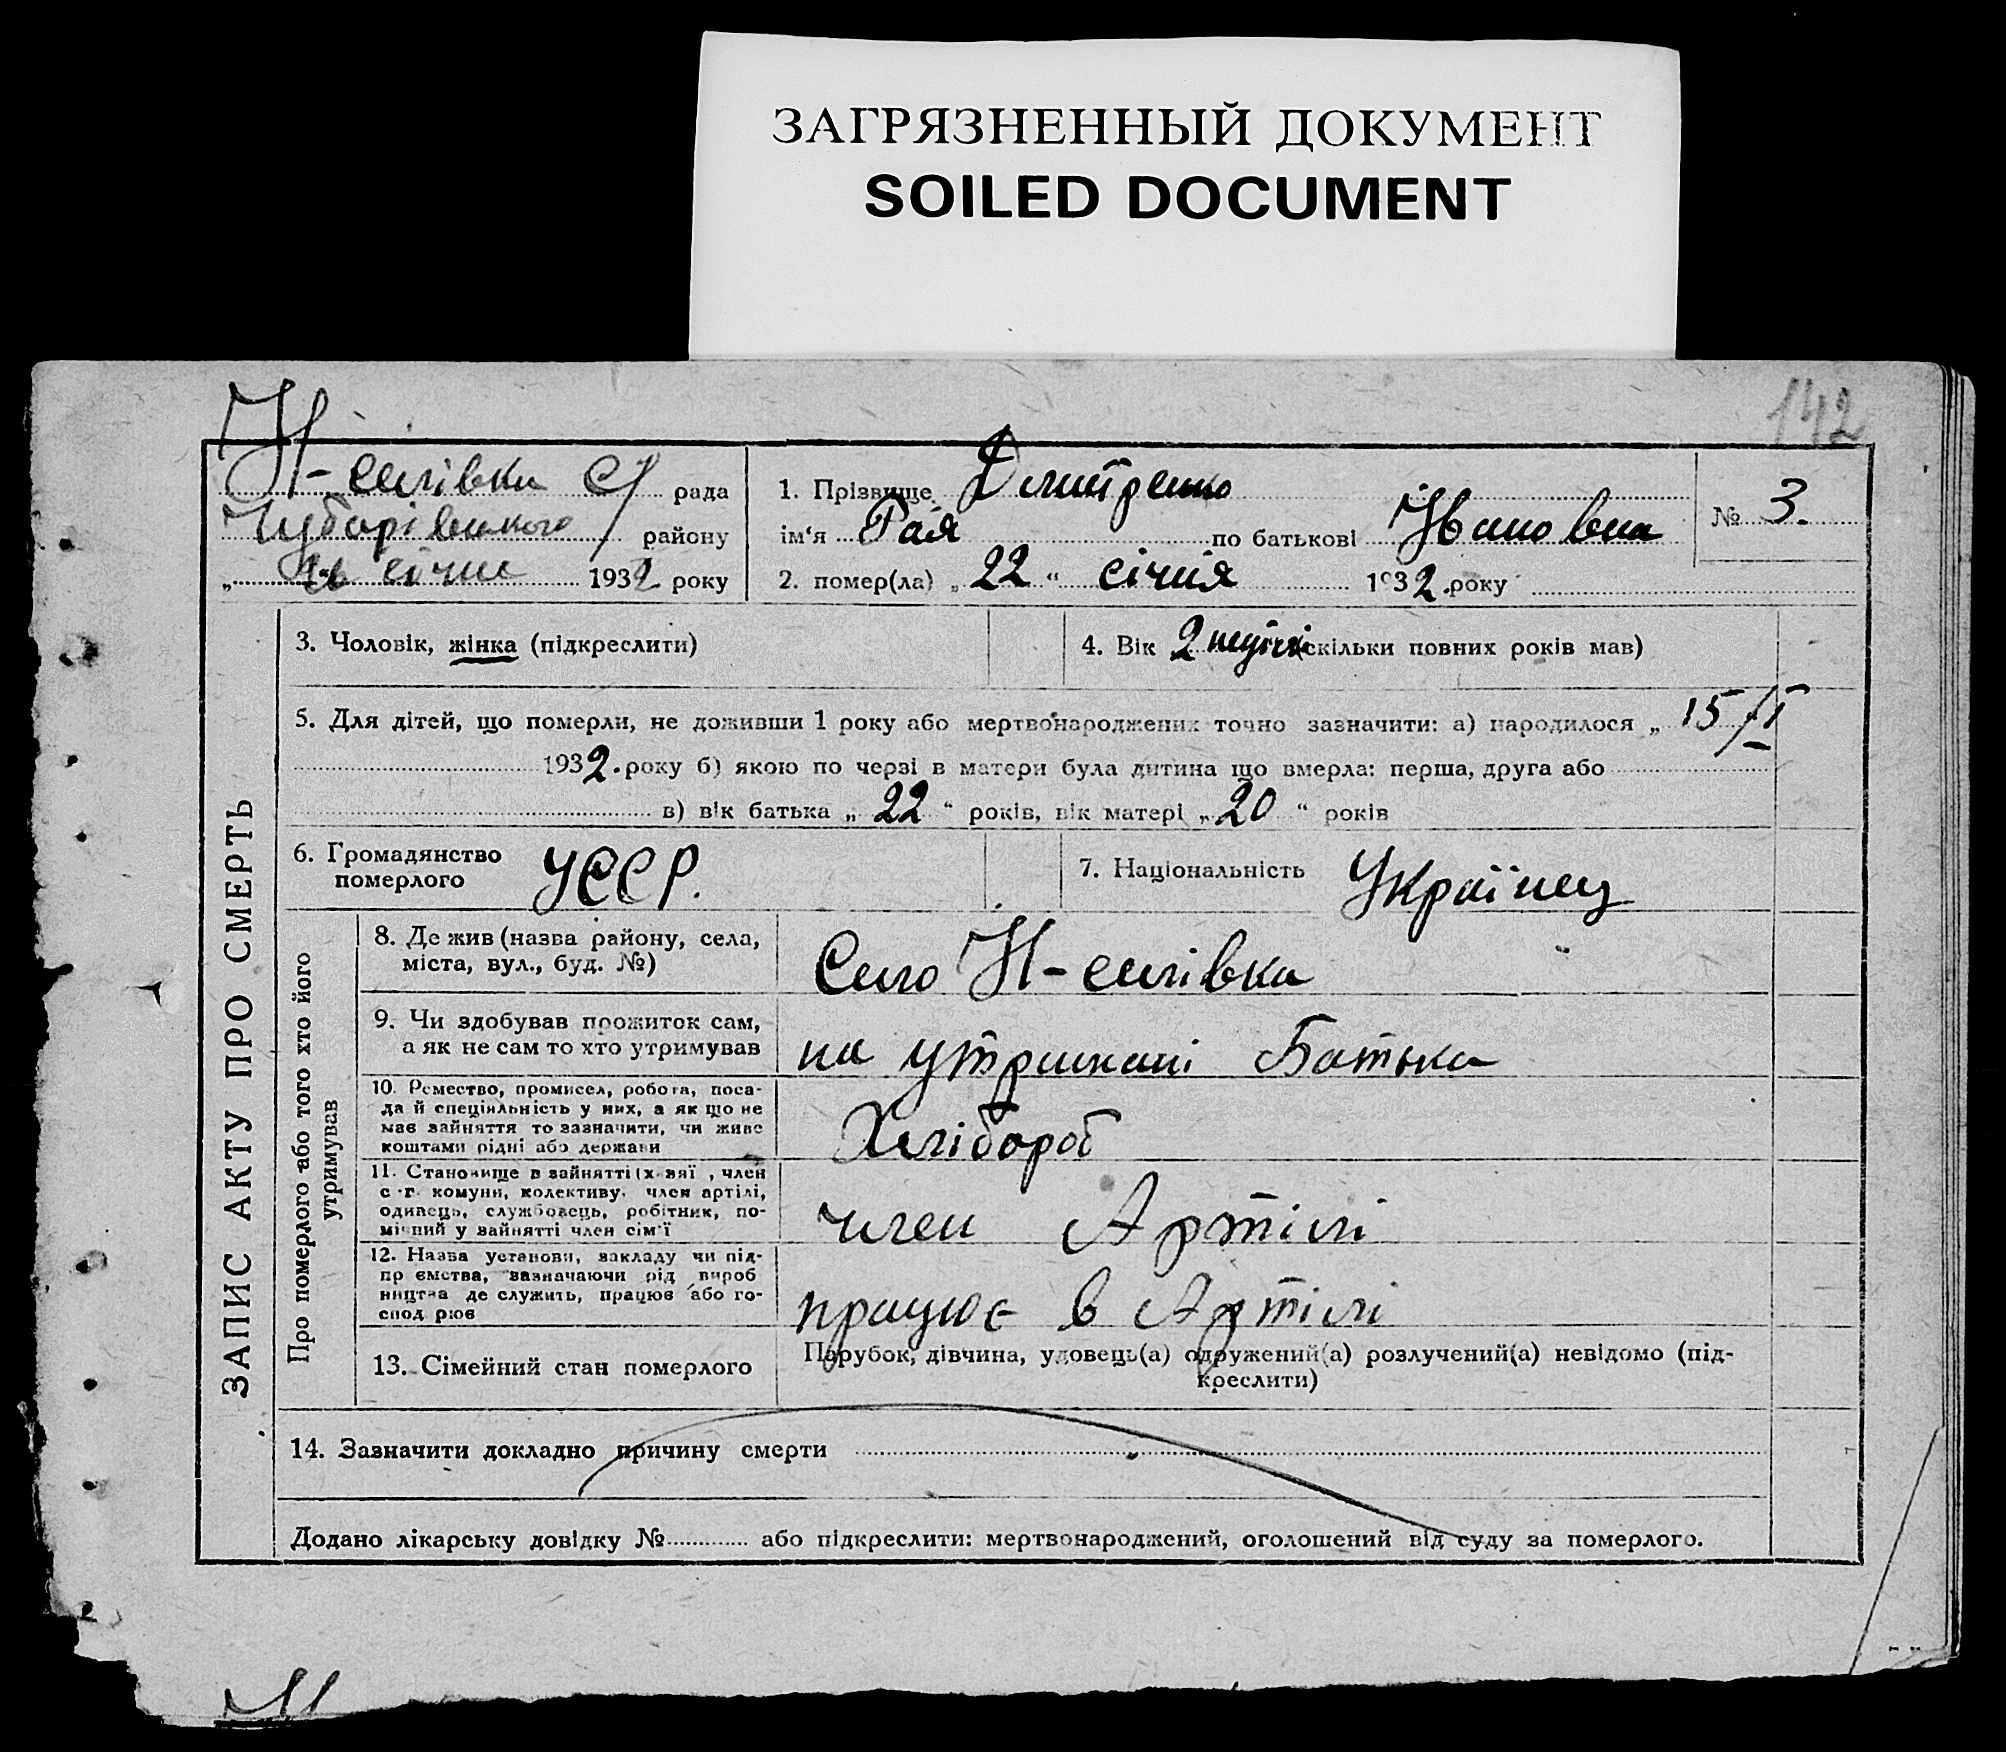 ЗАГРЯЗНЕННЫЙ ДОКУМЕНТ
SOILED DOCUMENT
142
Н-силівка с/ рада
Чубарівського району
„ січня 1932 року
1. Прізвище Дмитренко
ім'я Рая по батькові Івановна
№ 3.
2. помер(ла) „ 22 “ січня 1932. року
ЗАПИС АКТУ ПРО СМЕРТЬ
3. Чоловік, жінка (підкреслити)
4. Вік 2 (скільки повних років мав)
5. Для дітей, що померли, не доживши 1 року або мертвонароджених точно зазначити: а) народилося „ 15/I
1932. року б) якою по черзі в матери була дитина що вмерла: перша, друга або
в) вік батька „ 22 “ років, вік матері „ 20 “ років
6. Громадянство
померлого
УССР.
7. Національність Українец
Про померлого або того хто його
утримував
8. Де жив (назва району, села,
міста, вул., буд. №)
Село Н-силівка
9. Чи здобував прожиток сам,
а як не сам то хто утримував
на утримані Батька
10. Ремество, промисел, робота, поса-
да й спеціяльність у них, а як що не
має зайняття то зазначити, чи живе
коштами рідні або держави
Хлібороб
11. Становище в зайнятті (х-зяї , член
с.-г. комуни, колективу, член артілі,
одинець, службовець, робітник, по-
мічний у зайнятті член сім'ї
член Артілі
12. Назва установи, закладу чи під-
пр ємства, зазначаючи рід вироб
ництва де служить, працює або го-
спод рює
працює в Артілі
13. Сімейний стан померлого
Парубок, дівчина, удовець(а) одружений(а) розлучений(а) невідомо (під-
креслити)
14. Зазначити докладно причину смерти
Додано лікарську довідку № або підкреслити: мертвонароджений, оголошений від суду за померлого.
Н